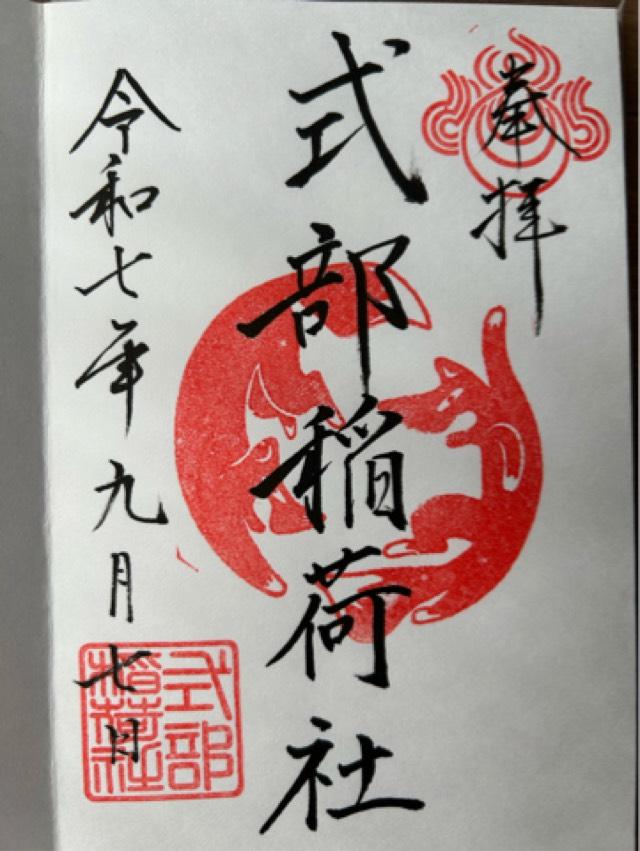 奉拝
式部稲荷社
令和七年九月七日
式部
稲荷社